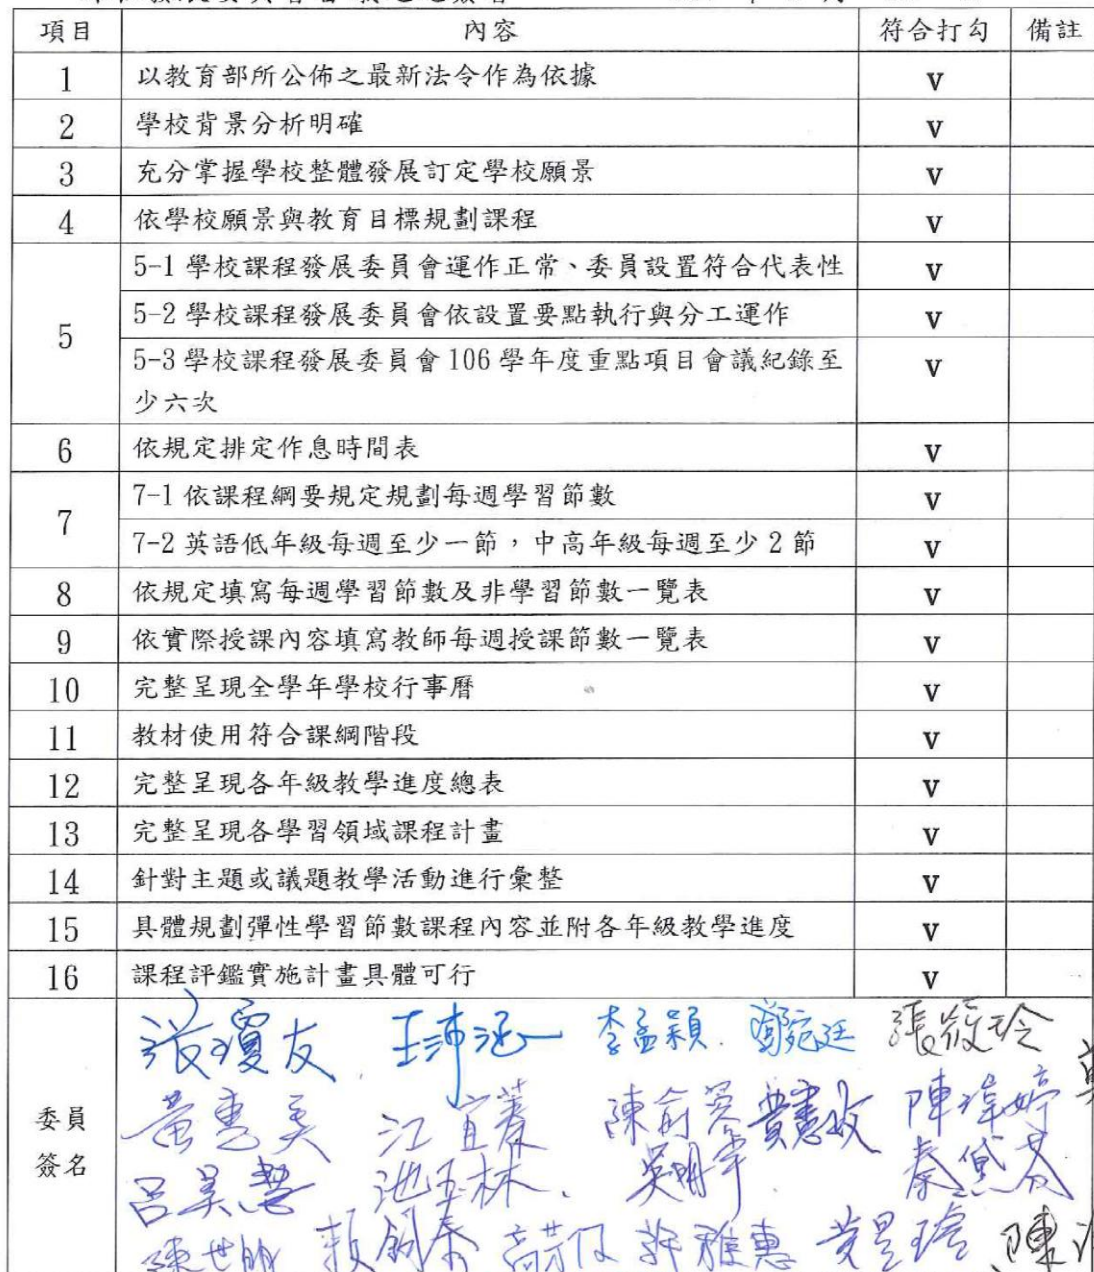 項目 內容 符合打勾 備註
1 以教育部所公佈之最新法令作為依據 V
2 學校背景分析明確 V
3 充分掌握學校整體發展訂定學校願景 V
4 依學校願景與教育目標規劃課程 V
5 5-1 學校課程發展委員會運作正常、委員設置符合代表性 V
5-2 學校課程發展委員會依設置要點執行與分工運作 V
5-3 學校課程發展委員會 106 學年度重點項目會議紀錄至 V
少六次
6 依規定排定作息時間表 V
7 7-1 依課程綱要規定規劃每週學習節數 V
7-2 英語低年級每週至少一節，中高年級每週至少 2 節 V
8 依規定填寫每週學習節數及非學習節數一覽表 V
9 依實際授課內容填寫教師每週授課節數一覽表 V
10 完整呈現全學年學校行事曆 V
11 教材使用符合課綱階段 V
12 完整呈現各年級教學進度總表 V
13 完整呈現各學習領域課程計畫 V
14 針對主題或議題教學活動進行彙整 V
15 具體規劃彈性學習節數課程內容並附各年級教學進度 V
16 課程評鑑實施計畫具體可行 V
委員
簽名
張瓊友 王沛涵 李孟穎 鄭宛廷 張筱玲
黃惠美 江宜蓁 陳俞 陳瑋婷
呂美慧 池玉林 吳明 秦黛芬
陳世明 賴 許雅惠 黃 陳